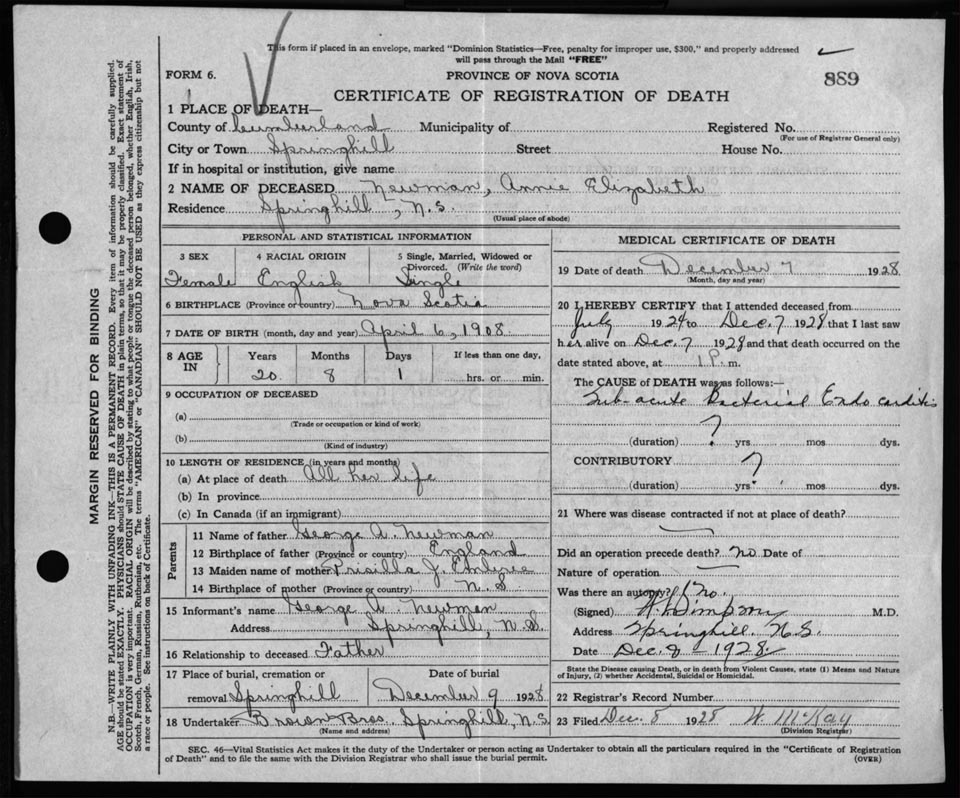 This form if placed in an envelope, marked "Dominion Statistics—Free, penalty for improper use, $300," and properly addressed
will pass through the Mail "FREE"
FORM 6.
PROVINCE OF NOVA SCOTIA
889
CERTIFICATE OF REGISTRATION OF DEATH
1 PLACE OF DEATH—
County of Cumberland Municipality of Registered No.
(For use of Registrar General only)
City or Town Springhill Street House No.
If in hospital or institution, give name
2 NAME OF DECEASED Newman, Annie Elizabeth
Residence Springhill, N.S.
(Usual place of abode)
PERSONAL AND STATISTICAL INFORMATION
3 SEX 4 RACIAL ORIGIN 5 Single, Married, Widowed or Divorced. (Write the word)
Female English Single
6 BIRTHPLACE (Province or country) Nova Scotia
7 DATE OF BIRTH (month, day and year) April 6, 1908.
8 AGE IN Years Months Days If less than one day,
20 8 1 hrs. or min.
9 OCCUPATION OF DECEASED
(a)
(Trade or occupation or kind of work)
(b)
(Kind of industry)
10 LENGTH OF RESIDENCE (in years and months)
(a) At place of death All her life
(b) In province
(c) In Canada (if an immigrant)
Parents
11 Name of father George A. Newman
12 Birthplace of father (Province or country) England
13 Maiden name of mother Prisilla J.
14 Birthplace of mother (Province or country) N.S
15 Informant's name George A. Newman
Address Springhill, N.S.
16 Relationship to deceased Father
17 Place of burial, cremation or removal Springhill Date of burial December 9 1928
18 Undertaker Brown Bros. Springhill, N.S.
(Name and address)
MEDICAL CERTIFICATE OF DEATH
19 Date of death December 7 1928
(Month, day and year)
20 I HEREBY CERTIFY that I attended deceased from
July 1924 to Dec. 7 1928 that I last saw
her alive on Dec. 7 1928 and that death occurred on the
date stated above, at 1 P. m.
The CAUSE of DEATH was as follows:—
Sub-acute Bacterial Endocarditis
?
(duration) yrs. mos dys.
CONTRIBUTORY ?
(duration) yrs. mos. dys.
21 Where was disease contracted if not at place of death?
Did an operation precede death? no. Date of
Nature of operation
Was there an autopsy? No.
(Signed) Simpson M.D.
Address Springhill. N.S.
Date Dec. 8 - 1928
State the Disease causing Death, or in death from Violent Causes, state (1) Means and Nature
of Injury, (2) whether Accidental, Suicidal or Homicidal.
22 Registrar's Record Number
23 Filed Dec. 8 1928 W McKay
(Division Registrar)
SEC. 46—Vital Statistics Act makes it the duty of the Undertaker or person acting as Undertaker to obtain all the particulars required in the "Certificate of Registration
of Death" and to file the same with the Division Registrar who shall issue the burial permit.
(OVER)
MARGIN RESERVED FOR BINDING
N.B.—WRITE PLAINLY WITH UNFADING INK—THIS IS A PERMANENT RECORD. Every item of information should be carefully supplied.
AGE should be stated EXACTLY. PHYSICIANS should STATE CAUSE OF DEATH in plain terms, so that it may be properly classified. Exact statement of
OCCUPATION is very important. RACIAL ORIGIN will be described by stating to what people or tongue the deceased person belonged, whether English, Irish,
Scotch, French, German, Russian, Ruthenian, etc. The terms "AMERICAN" or "CANADIAN" SHOULD NOT BE USED as they express citizenship but not
a race or people. See instructions on back of Certificate.